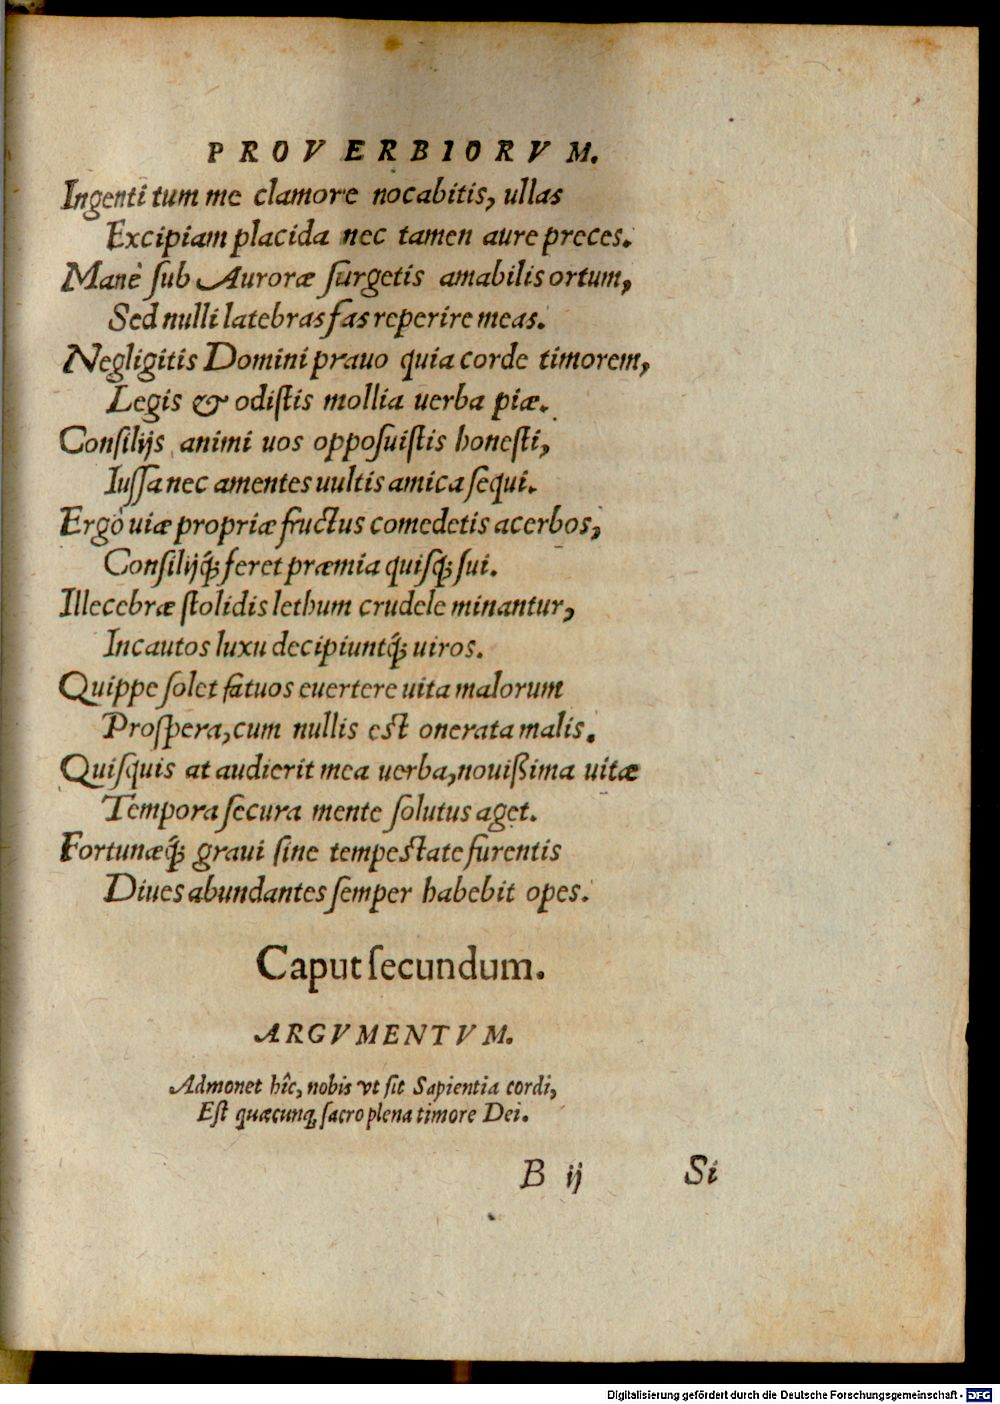 PROVERBIORVM.
Ingenti tum me clamore nocabitis, ullas
Excipiam placida nec tamen aure preces.
Manè ſub Auroræ ſurgetis amabilis ortum,
Sed nulli latebras fas reperire meas.
Negligitis Domini prauo quia corde timorem,
Legis & odiſtis mollia uerba piæ.
Conſilijs animi uos oppoſuiſtis honeſti,
Iuſſa nec amentes uultis amica ſequi.
Ergò uiæ propriæ fructus comedetis acerbos,
Conſilijq́; feret præmia quiſq; ſui.
Illecebræ ſtolidis lethum crudele minantur,
Incautos luxu decipiuntq́; uiros.
Quippe ſolet fatuos euertere uita malorum
Proſpera, cum nullis eſt onerata malis.
Quiſquis at audierit mea uerba, nouißima uitæ
Tempora ſecura mente ſolutus aget.
Fortunæq́; graui ſine tempeſtate furentis
Diues abundantes ſemper habebit opes.
Caput ſecundum.
ARGVMENTVM.
Admonet hîc, nobis vt ſit Sapientia cordi,
Eſt quæcunq; ſacro plena timore Dei.
B ij Si
Digitalisierung gefördert durch die Deutsche Forschungsgemeinschaft - DFG